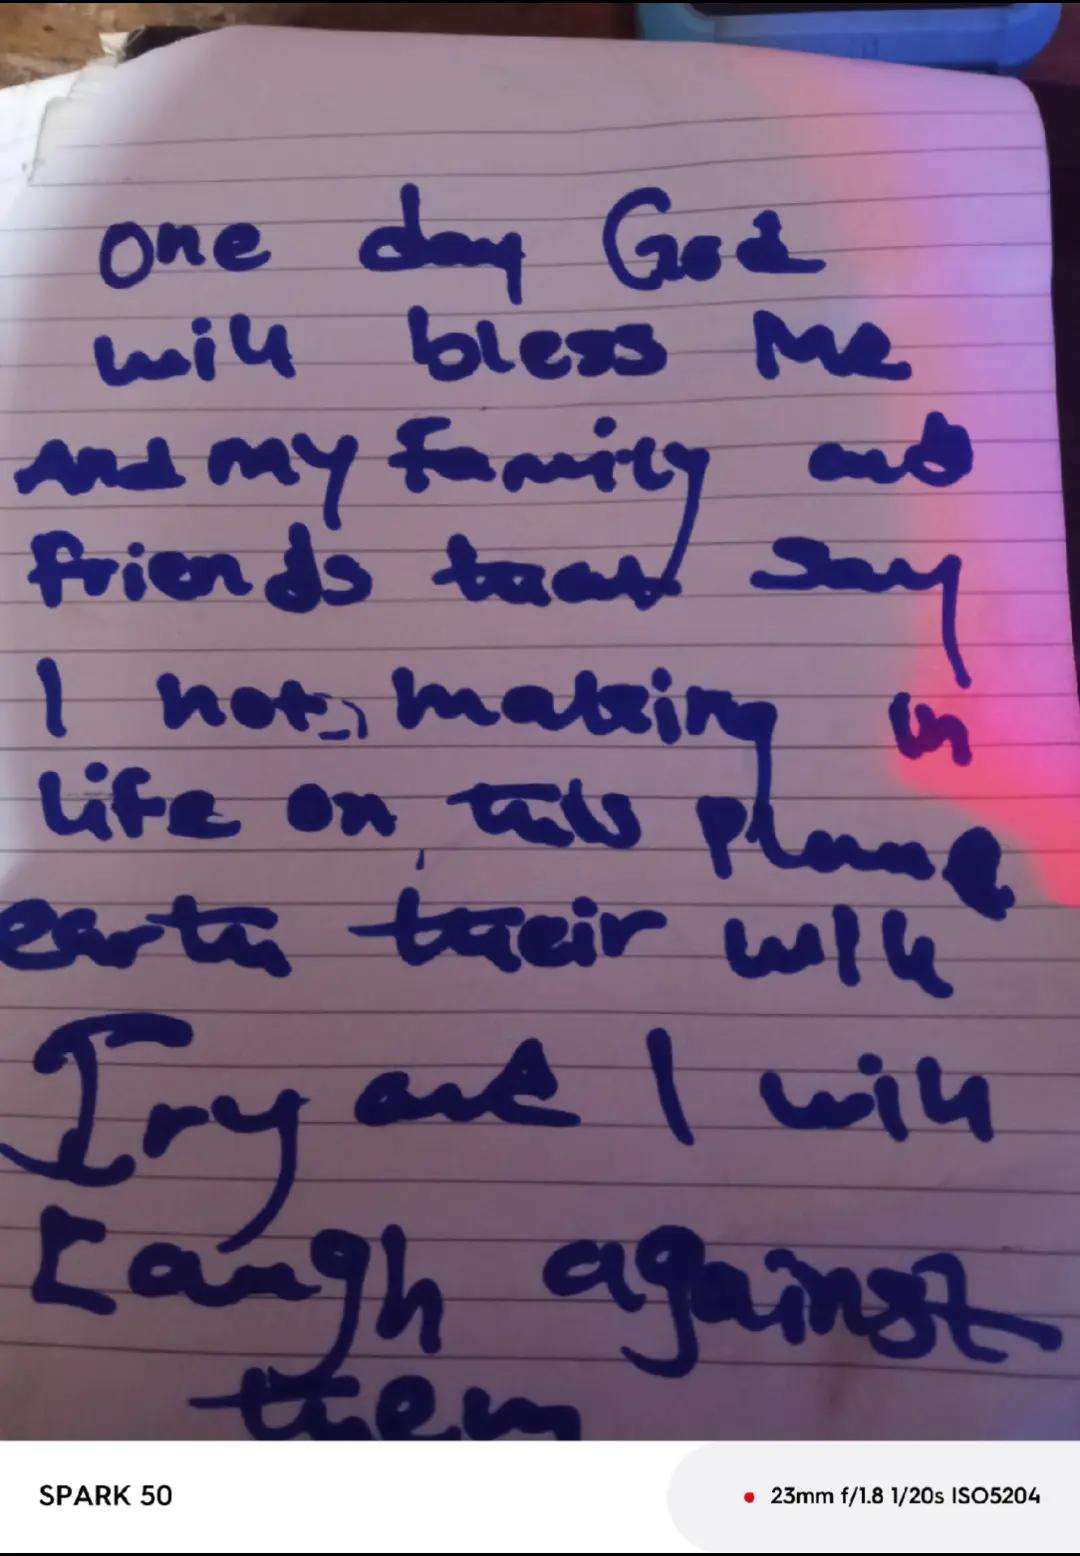 One day God
will bless Me
And my Family and
friends that say
I not making in
life on this plane
earth their will
Try and I will
Laugh against
them
SPARK 50
23mm f/1.8 1/20s ISO5204